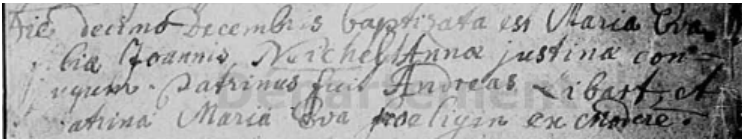 Die decimo Decembris baptizata est Maria Eva
filia Joannis Anna justina con
jugum. Patrinus fuit Andreas Libart, et
atrina Maria Eva ex